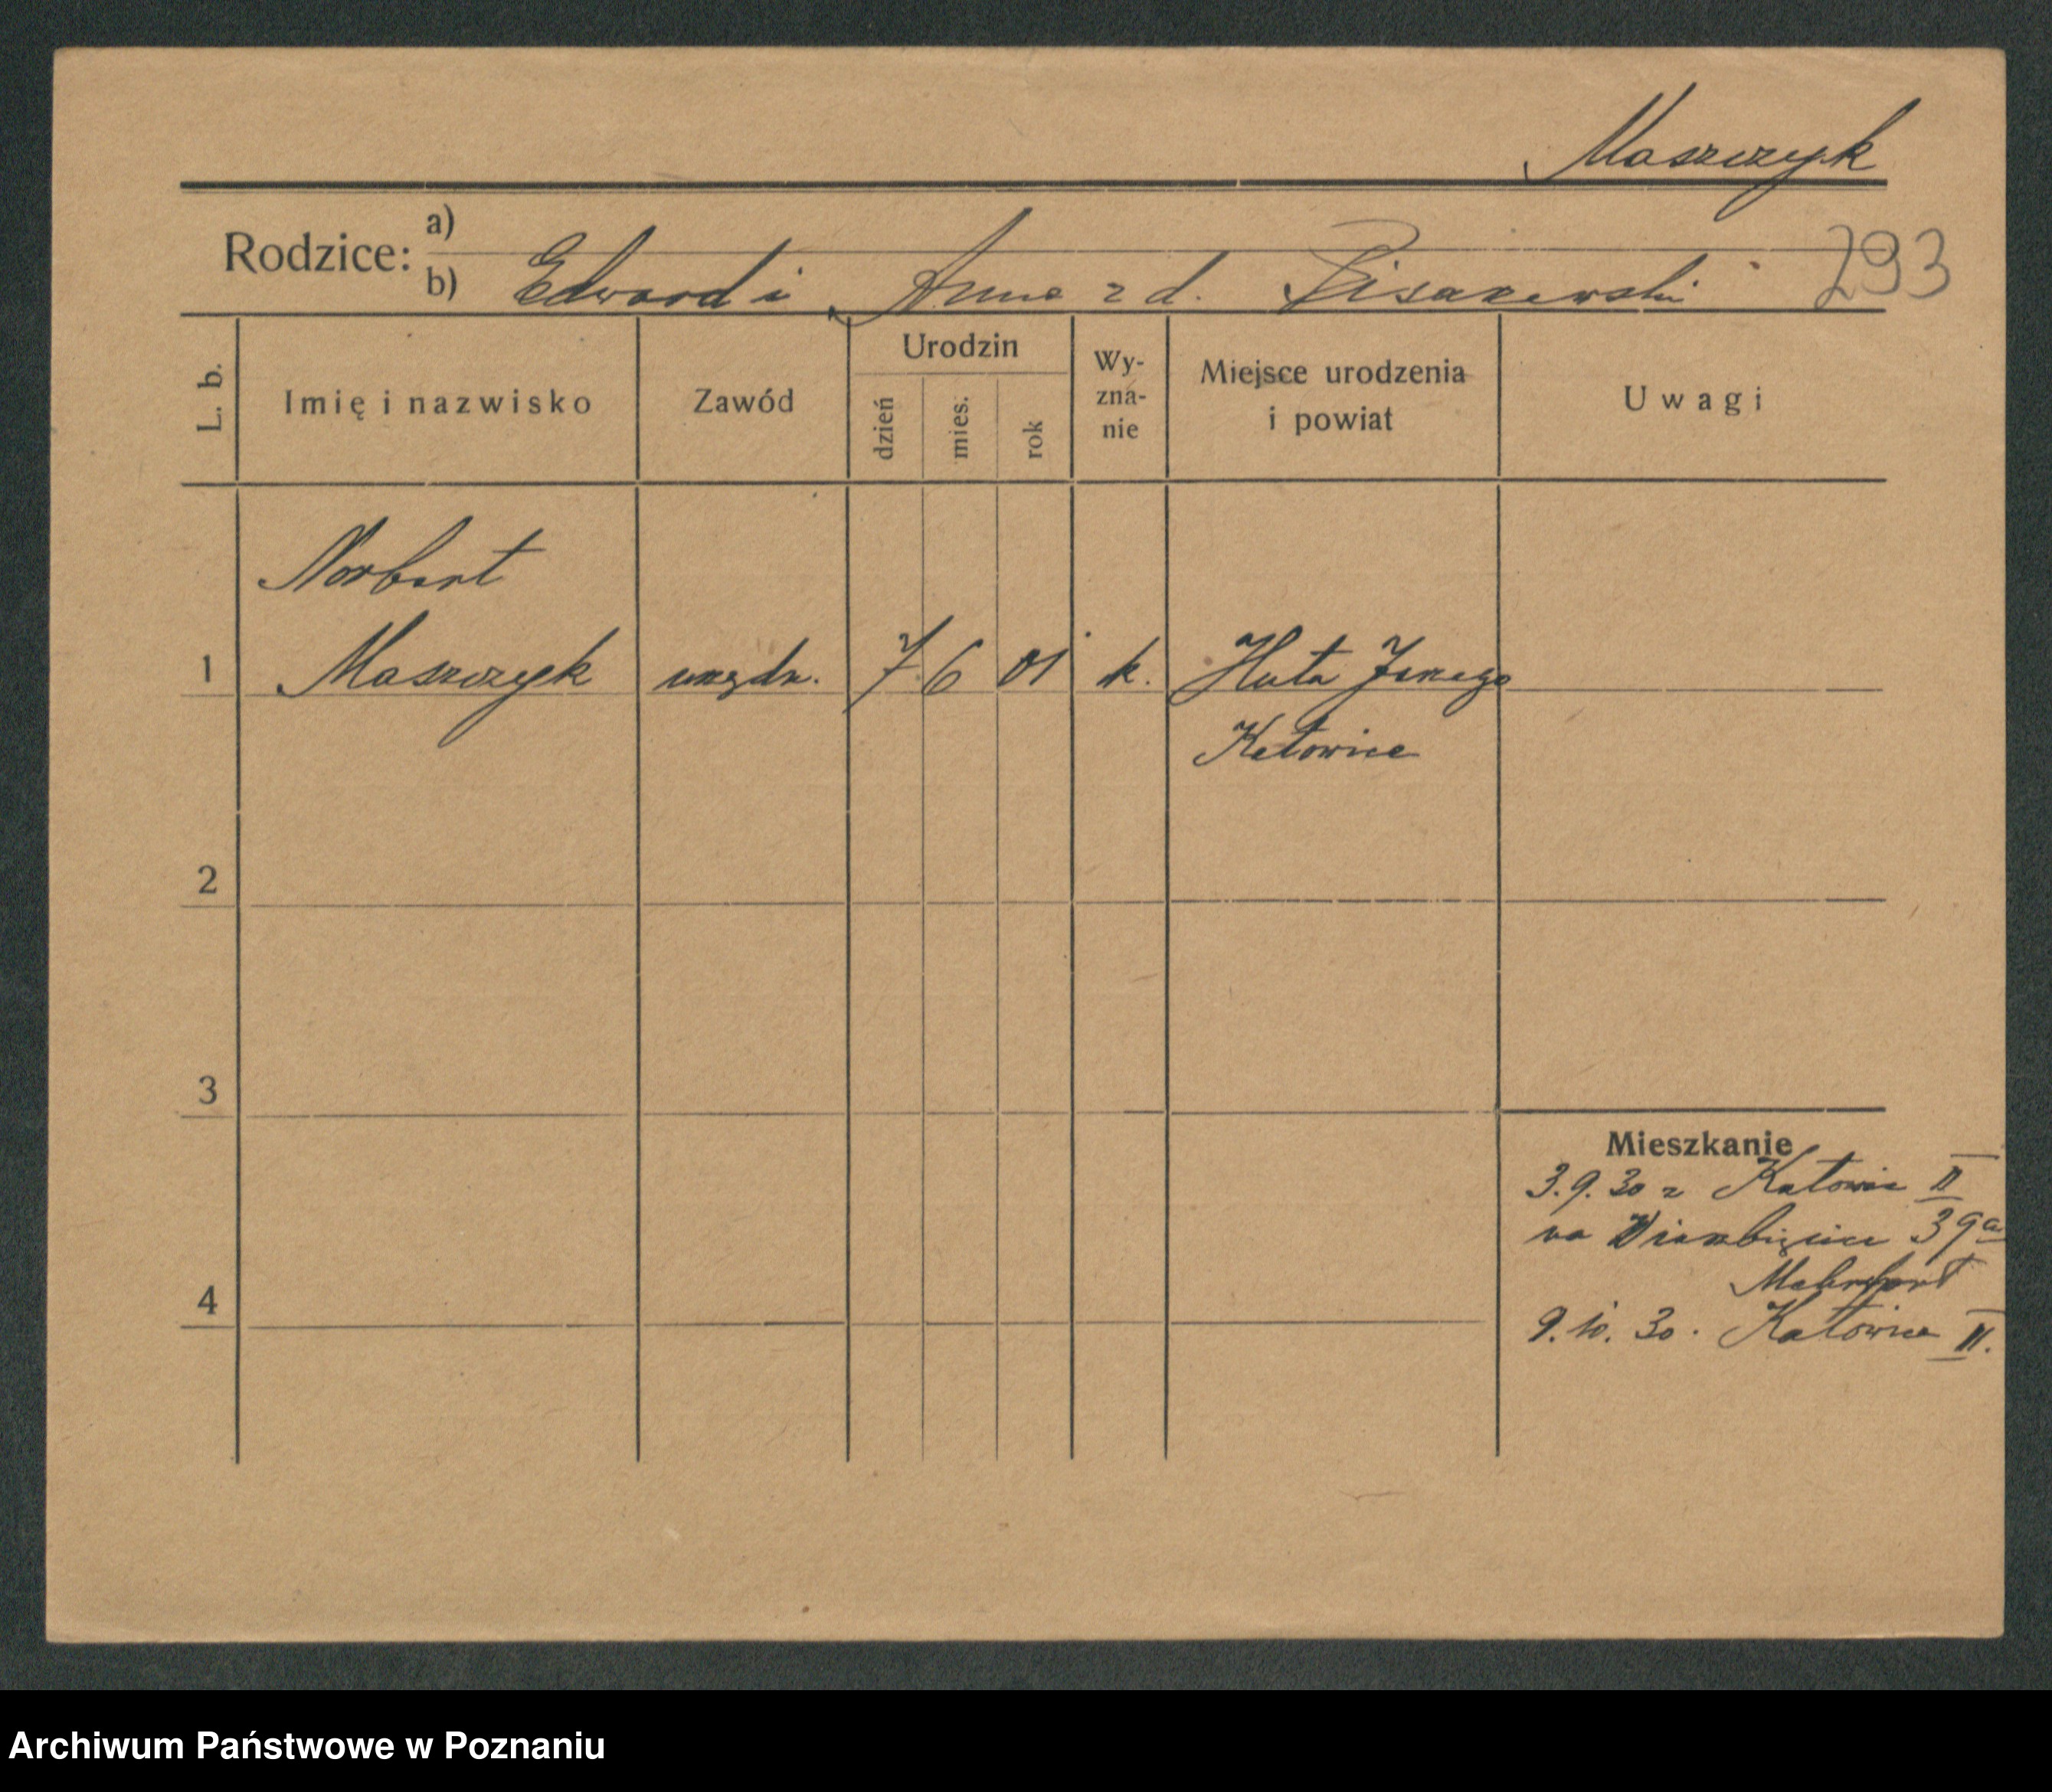 Maszczyk
Rodzice: a)
b) Edward i Anna z d. Pisarzewski
293
L. b.
Imię i nazwisko
Zawód
Urodzin
dzień
mies.
rok
Wy-
zna-
nie
Miejsce urodzenia
i powiat
Uwagi
Norbert
1 Maszczyk urzędn. 7 6 01 k. Huta Jerzego
Katowice
2
3
Mieszkanie
3.9.30 z Katowic II
na Wierzbięcice 39a
4
9.10.30. Katowice II.
Archiwum Państwowe w Poznaniu